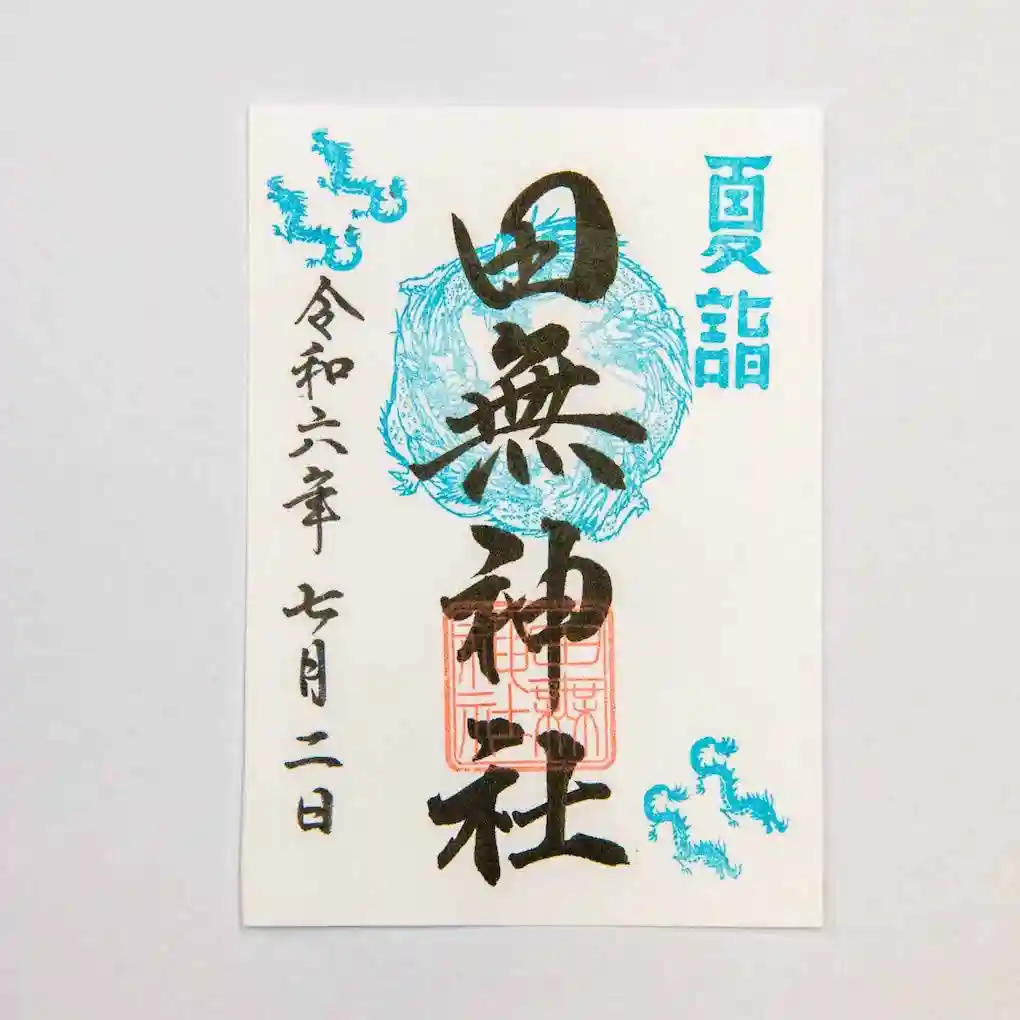 夏詣
田無神社
田無神社
令和六年 七月二日